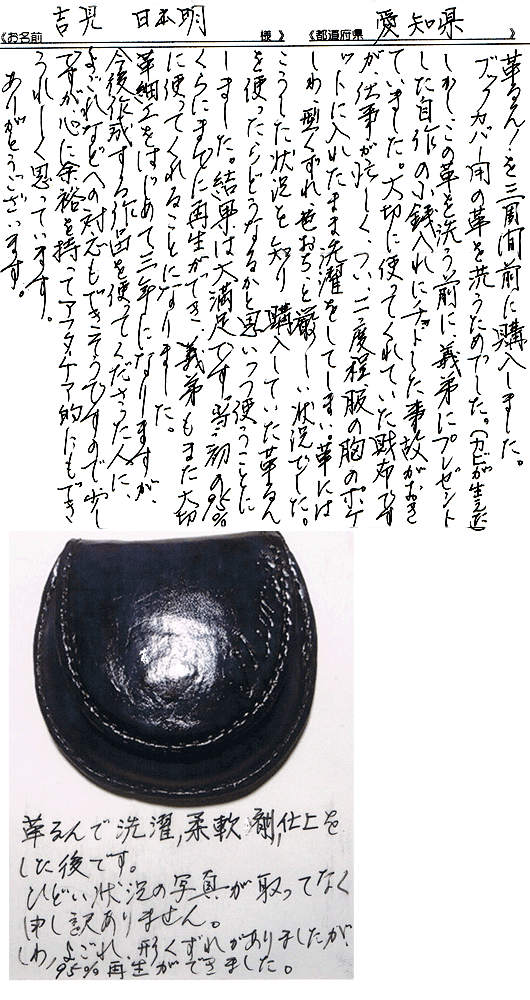 《お名前 吉見 日本明 様》 《都道府県 愛知県 》
革るん!を三周間前に購入しました。
ブックカバー用の革を洗うためでした。(カビが生えた)
しかし、この革を洗う前に、義弟にプレゼント
した自作の小銭入れにチョットした事故がおき
ていました。大切に使ってくれていた財布です
が、仕事が忙しく、つい、二度程服の胸のポケ
ットに入れたまま洗濯をしてしまい、革には
しわ、型くずれ、色おちと厳しい状況でした。
こうした状況を知り、購入していた革るん
を使ったらどうなるかと思いつつ使うことに
しました。結果は大満足です。当初の95%
くらいまでに再生ができ、義弟もまた大切
に使ってくれることになりました。
革細工をはじめて三年になりますが、
今後作成する作品を使ってくださった人に、
よごれなどへの対応もできそうですので少し
ですが心に余裕を持ってアフタケア的にもでき
うれしく思っています。
ありがとうございます。
革るんで洗濯,柔軟剤,仕上を
した後です。
ひどい状況の写真が取ってなく
申し訳ありません。
しわ,よごれ,形くずれがありましたが、
95%再生ができました。